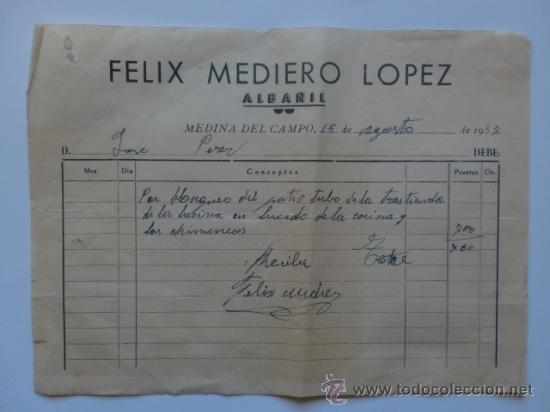 FELIX MEDIERO LOPEZ
ALBAÑIL
MEDINA DEL CAMPO, 15 de agosto de 1952
D. Jose Perez DEBE
Mes Dia Conceptos Pesetas Cts.
Por blanqueo del patio tubo de la trastienda
de la en lucido de la cocina y
las chimeneas 700
Total 700
Recibi
Felix
TC www.todocoleccion.net